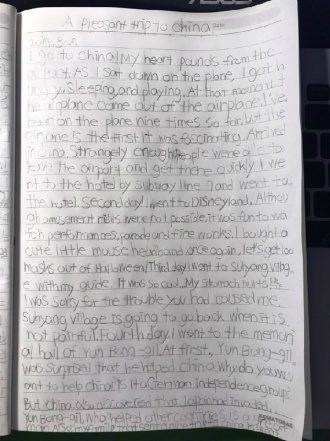 A pleasant trip to China
I go to China! My heart pounds from the
airport. As I sat down on the plane, I got h
sleeping, and playing. At that moment
he airplane came out of the airplane. I've
been on the plane nine times so far, but the
game is the first it was fascinating. Arrived
in China. Strangely enough people were able to
leave the airport and get there quickly I we
nt to the hotel by subway line 7 and went to
the hotel. Second day I went to DISNEYland. Althou
gh amusement rides were not possible, it was fun to wa
tch performances, parade and fire works. I bought a
cute little mouse headband once again, let's get
masks out of Halloween! Third day I went to Sunyang villag
e with my guide. It was so cool. My stomach hurts
I was sorry for the trouble you had caused me.
Sunyang village is going to go back when it is
not painful. Fourth day, I went to the memori
al hall of Yun Bong-gil. At first, Yun Bong-gil
was surprised that he helped China. why do you w
ant to help china? Is it a German Independence group?
But China also discovered that Japanese invaded
Yun Bong-gil, who helped other countries is a